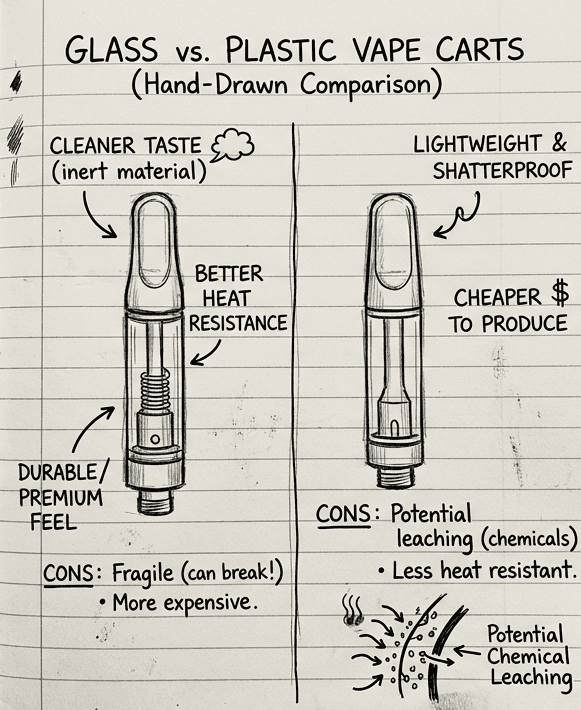 GLASS vs. PLASTIC VAPE CARTS
(Hand-Drawn Comparison)
CLEANER TASTE
(inert material)
BETTER
HEAT
RESISTANCE
DURABLE/
PREMIUM
FEEL
CONS: Fragile (can break!)
• More expensive.
LIGHTWEIGHT &
SHATTERPROOF
CHEAPER $
TO PRODUCE
CONS: Potential
leaching (chemicals)
• Less heat resistant.
Potential
Chemical
Leaching